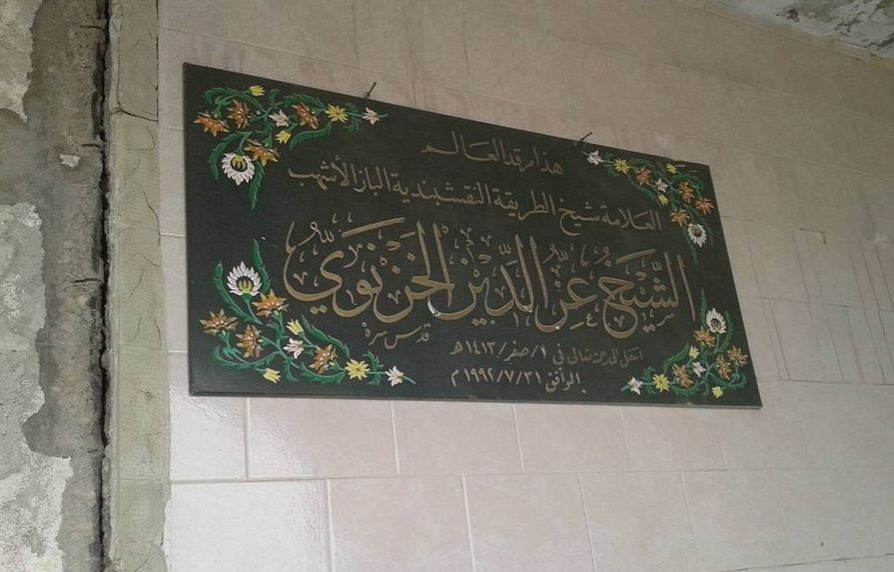 هذا مرقد العالم
العلامة شيخ الطريقة النقشبندية الباز الأشهب
الشَّيخ عِزُّ الدِّين الخزنَويّ
قدس سره
انتقل الى رحمة تعالى في ١/صفر/١٤١٣ هـ
الموافق ١٩٩٢/٧/٣١ م